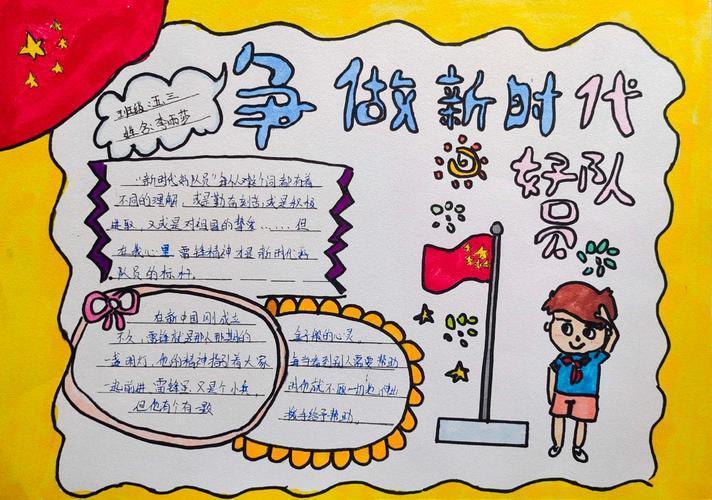 争做新时代
好队员
班级:五三
姓名:李雨莎
"新时代好队员"每个人对这个词都有着
不同的理解，或是勤奋刻苦;或是积极
进取，又或是对祖国的挚爱……但
在我心里雷锋精神才是新时代好
队员的标杆。
在新中国刚成立
不久，雷锋就是那个那期的
一盏明灯，他的精神指引着大家
一起前进，雷锋虽又是个小兵，
但他有个有一颗
金子般的心灵，
每当看到别人需要帮助
时他就不顾一切地伸出
援手给予帮助。